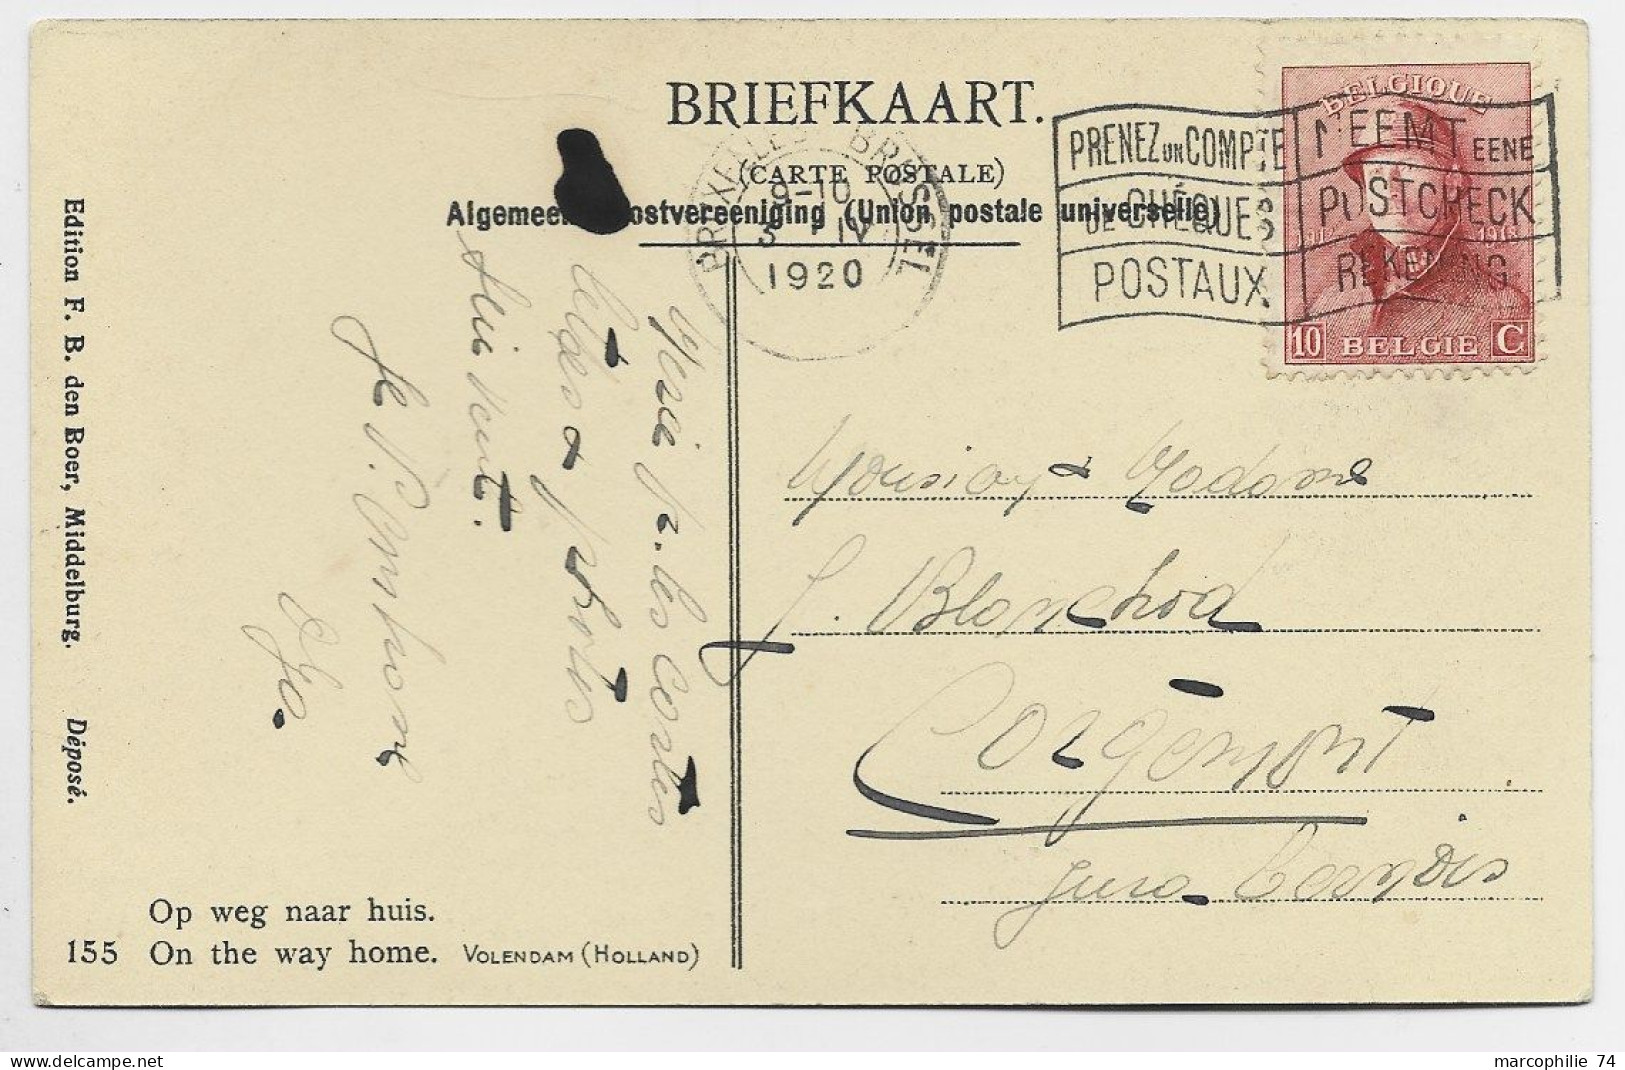 BRIEFKAART.
(CARTE POSTALE)
Algemeene Postvereeniging (Union postale universelle)
BRUXELLES BRUSSEL
9-10
3 IV
1920
PRENEZ UN COMPTE
DE CHÈQUES
POSTAUX
NEEMT EENE
POSTCHECK
REKENING
BELGIQUE
1918
10 BELGIE C
Merci pr. les cartes
lettres & photos
suivent.
Je
Monsieur & Madame
J. Blanchod
Corgémont
Jura Bernois
Edition F. B. den Boer, Middelburg. Déposé.
Op weg naar huis.
155 On the way home. VOLENDAM (HOLLAND)
marcophilie 74